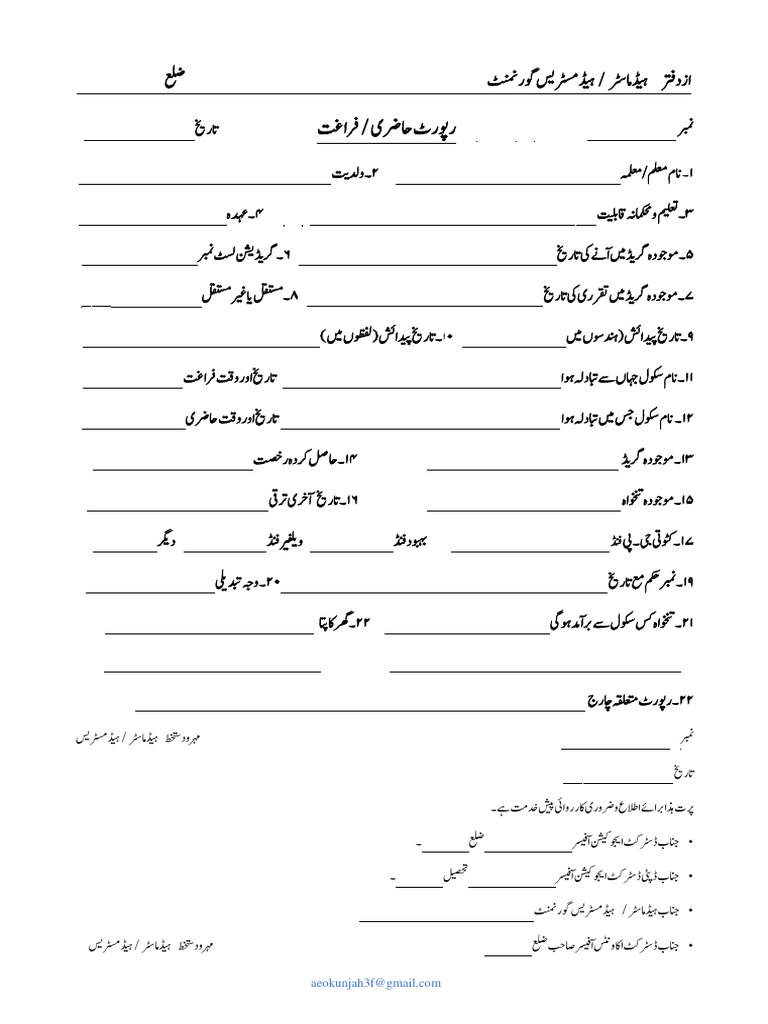 از دفتر ہیڈ ماسٹر / ہیڈ مسٹریس گورنمنٹ ضلع
نمبر رپورٹ حاضری / فراغت تاریخ
۱۔ نام معلم/معلمہ ۲۔ ولدیت
۳۔ تعلیم و محکمانہ قابلیت ۴۔ عہدہ
۵۔ موجودہ گریڈ میں آنے کی تاریخ ۶۔ گریڈیشن لسٹ نمبر
۷۔ موجودہ گریڈ میں تقرری کی تاریخ ۸۔ مستقل یا غیر مستقل
۹۔ تاریخ پیدائش (ہندسوں میں ۱۰۔ تاریخ پیدائش (لفظوں میں)
۱۱۔ نام سکول جہاں سے تبادلہ ہوا تاریخ اور وقت فراغت
۱۲۔ نام سکول جس میں تبادلہ ہوا تاریخ اور وقت حاضری
۱۳۔ موجودہ گریڈ ۱۴۔ حاصل کردہ رخصت
۱۵۔ موجودہ تنخواہ ۱۶۔ تاریخ آخری ترقی
۱۷۔ کٹوتی جی۔ پی فنڈ بہبود فنڈ ویلفیر فنڈ دیگر
۱۹۔ نمبر حکم مع تاریخ ۲۰۔ وجہ تبدیلی
۲۱۔ تنخواہ کس سکول سے برآمد ہوگی ۲۲۔ گھر کا پتا
۲۲۔ رپورٹ متعلقہ چارج
نمبر مہر و دستخط ہیڈ ماسٹر / ہیڈ مسٹریس
تاریخ
پرت ہذا برائے اطلاع و ضروری کارروائی پیش خدمت ہے۔
• جناب ڈسٹرکٹ ایجوکیشن آفیسر ضلع ۔
• جناب ڈپٹی ڈسٹرکٹ ایجوکیشن آفیسر تحصیل ۔
• جناب ہیڈ ماسٹر / ہیڈ مسٹریس گورنمنٹ
• جناب ڈسٹرکٹ اکاونٹس آفیسر صاحب ضلع مہر و دستخط ہیڈ ماسٹر / ہیڈ مسٹریس
aeokunjah3f@gmail.com